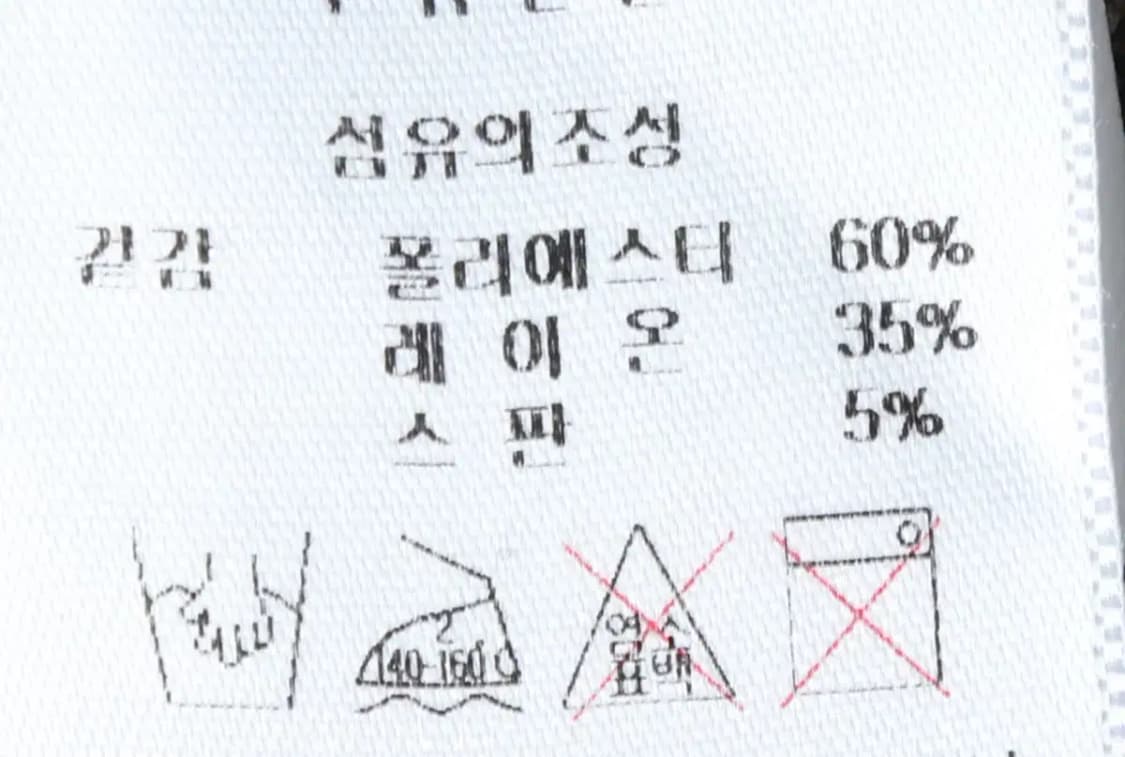 섬유의조성
겉감 폴리에스터 60%
레이온 35%
스판 5%
2
140-160℃
염소
표백